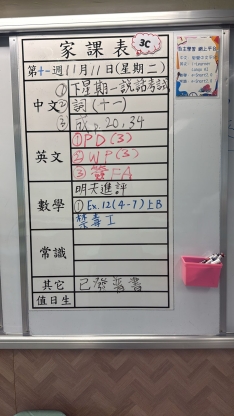 家課表 3C
第十一週11月11日(星期二)
中文 ①下星期一說話考試
②詞(十一)
③成 P.20,34
英文 ①PD(3)
②WP(3)
③簽FA
數學 明天進評
①Ex.12(4-7)上B
常識
其它 已發
值日生